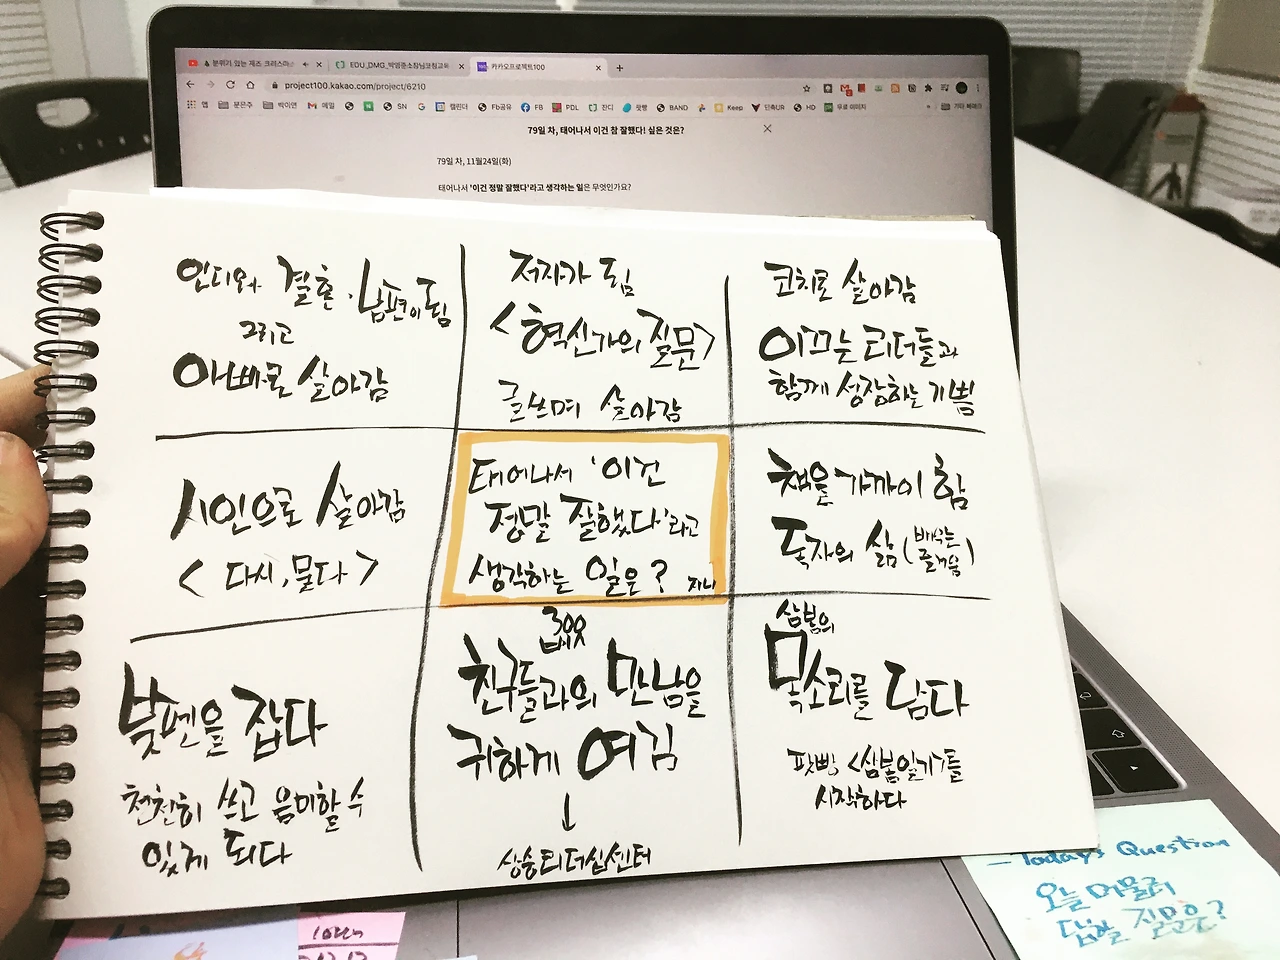 분위기 있는 재즈 크리스마스
EDU_DMG_박영준소장님코칭교육
카카오프로젝트100
project100.kakao.com/project/6210
앱 분은주 박이연 메일 SN 캘린더 Fb공유 FB PDL 잔디 BAND Keep 단축UR HD 무료 이미지 기타 북마크
79일 차, 태어나서 이건 참 잘했다! 싶은 것은?
79일 차, 11월24일(화)
태어나서 '이건 정말 잘했다'라고 생각하는 일은 무엇인가요?
인디와 결혼. 남편이 됨
그리고
아빠로 살아감
저자가 됨
<혁신가의 질문>
글쓰며 살아감
코치로 살아감
이끄는 리더들과
함께 성장하는 기쁨
시인으로 살아감
<다시, 묻다>
태어나서 '이건
정말 잘했다'라고
생각하는 일은? 지니
책을 가까이 함
독자의 삶 (배우는
즐거움)
붓펜을 잡다
천천히 쓰고 음미할 수
있게 되다
300
친구들과의 만남을
귀하게 여김
↓
상승리더십센터
삼봄의
목소리를 담다
팟빵 <삼봄일기>를
시작하다
- Today's Question
오늘 머물러
답할 질문은?